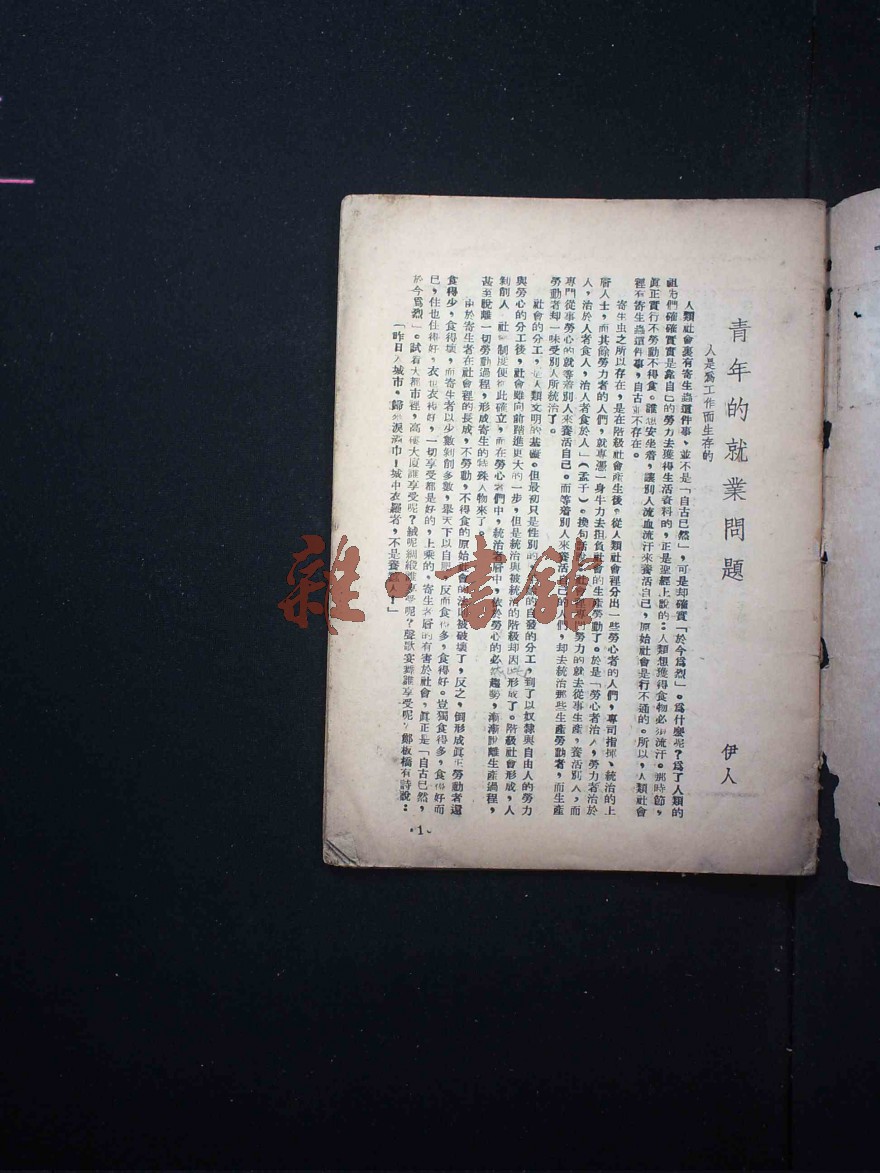 青年的就業問題
伊人
人是爲工作而生存的
人類社會裏有寄生蟲這件事、並不是「自古已然」，可是却確實「於今爲烈」。爲什麼呢？爲了人類的
祖先們確確實實是靠自己的勞力去獲得生活資料的，正是聖經上說的：人類想獲得食物必須流汗。那時節，
眞正實行不勞動不得食。誰想安坐着，讓別人流血流汗來養活自己，原始社會是行不通的。所以，人類社會
裡有寄生蟲這件事，自古並不存在。
寄生虫之所以存在，是在階級社會產生後。從人類社會裡分出一些勞心者的人們，專司指揮、統治的上
層人士，而其餘勞力者的人們，就專憑一身牛力去担負社會的生產勞動了。於是「勞心者治人，勞力者治於
人，治於人者食人，治人者食於人」（孟子）。換句話說，社會裡專門勞力的就去從事生產，養活別人，而
專門從事勞心的就等着別人來養活自己。而等着別人來養活自己的人們，却去統治那些生產勞動者，而生產
勞動者却一味受別人所統治了。
社會的分工，是人類文明的基礎。但最初只是性別的，的自發的分工，到了以奴隸與自由人的勞力
與勞心的分工後，社會雖向前踏進更大的一步，但是統治與被統治的階級却因此形成了。階級社會形成，人
剝削人社會制度便從此確立，而在勞心者們中，統治者層中，依於勞心的必然趨勢，漸漸脫離生產過程，
甚至脫離一切勞動過程，形成寄生的特殊人物來了。
由於寄生者在社會裡的長成，不勞動，不得食的原始社會的法則被破壞了，反之，倒形成眞正勞動者還
食得少，食得壞，而寄生者以少數剝削多數，舉天下以自肥，反而食得多，食得好。豈獨食得多，食得好而
已，住也住得好，衣也衣得好，一切享受都是好的，上乘的。寄生者層的有害於社會，眞正是「自古已然，
於今爲烈」。試看大都市裡，高樓大厦誰享受呢？絨呢綢緞誰享受呢？聲歌宴舞誰享受呢？鄭板橋有詩說：
「昨日入城市，歸來淚滿巾！城中衣羅者，不是養蠶人！」
·1·
雜·書館